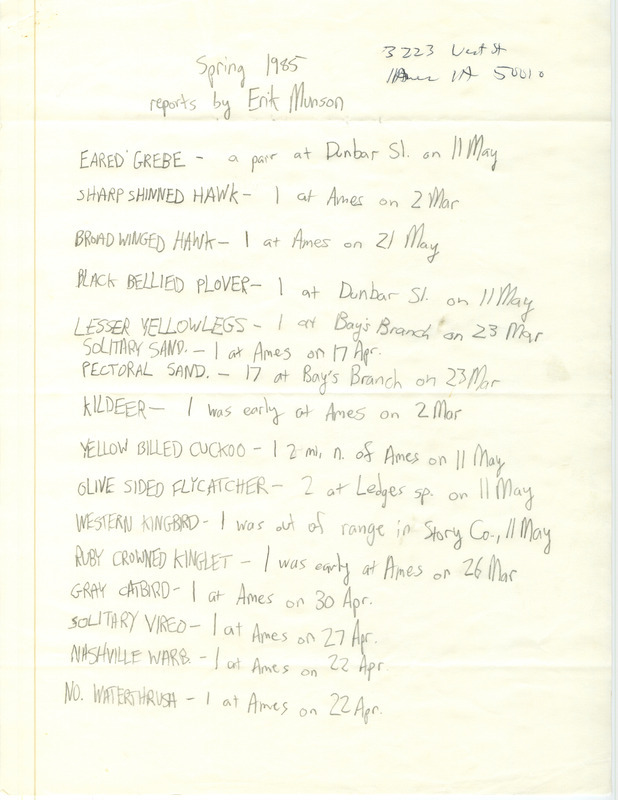 Spring 1985
reports by Erik Munson
3223 West St
Ames IA 50010
EARED GREBE - a pair at Dunbar Sl. on 11 May
SHARP SHINNED HAWK - 1 at Ames on 2 Mar
BROAD WINGED HAWK - 1 at Ames on 21 May
BLACK BELLIED PLOVER - 1 at Dunbar Sl. on 11 May
LESSER YELLOWLEGS - 1 at Bay's Branch on 23 Mar
SOLITARY SAND. - 1 at Ames on 17 Apr.
PECTORAL SAND. - 17 at Bay's Branch on 23 Mar
KILDEER - 1 was early at Ames on 2 Mar
YELLOW BILLED CUCKOO - 1 2 mi. n. of Ames on 11 May
OLIVE SIDED FLYCATCHER - 2 at Ledges sp. on 11 May
WESTERN KINGBIRD - 1 was out of range in Story Co., 11 May
RUBY CROWNED KINGLET - 1 was early at Ames on 26 Mar
GRAY CATBIRD - 1 at Ames on 30 Apr.
SOLITARY VIREO - 1 at Ames on 27 Apr.
NASHVILLE WARB. - 1 at Ames on 22 Apr.
NO. WATERTHRUSH - 1 at Ames on 22 Apr.